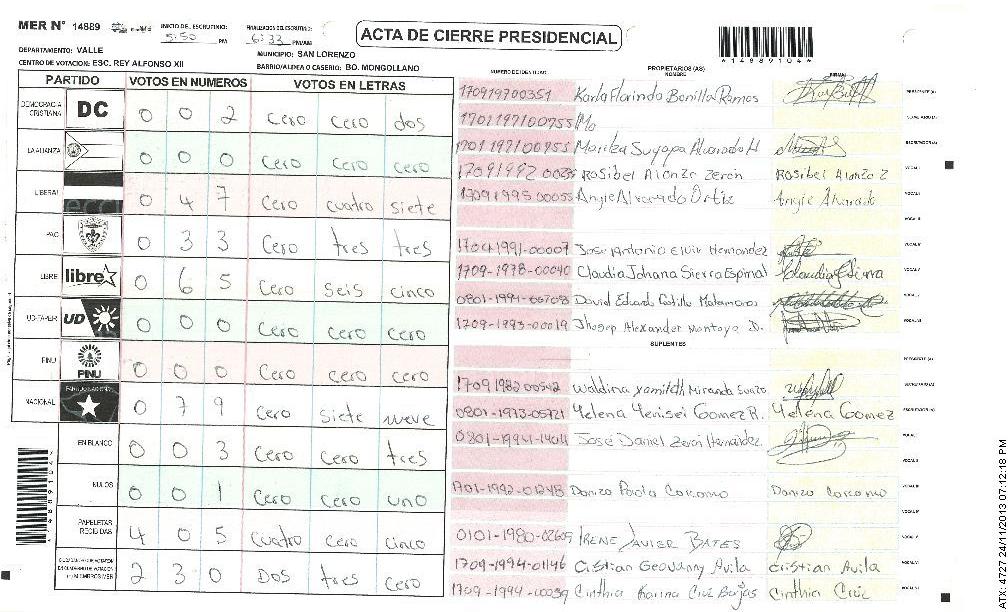 MER N° 14889
INICIO DEL ESCRUTINIO: 5:50 PM
FINALIZACION DEL ESCRUTINIO: 6:33 PM/AM
ACTA DE CIERRE PRESIDENCIAL
*14889104*
DEPARTAMENTO: VALLE
MUNICIPIO: SAN LORENZO
CENTRO DE VOTACION: ESC. REY ALFONSO XII
BARRIO/ALDEA O CASERIO: BO. MONGOLLANO
PARTIDO VOTOS EN NUMEROS VOTOS EN LETRAS
NUMERO DE IDENTIDAD PROPIETARIOS (AS) NOMBRE FIRMA
DEMOCRACIA CRISTIANA DC 0 0 2 cero cero dos
LA ALIANZA 0 0 0 cero cero cero
LIBERAL 0 4 7 cero cuatro siete
PAC 0 3 3 cero tres tres
LIBRE libre 0 6 5 cero seis cinco
UD-FAPER UD 0 0 0 cero cero cero
PINU PINU 0 0 0 cero cero cero
NACIONAL PARTIDO NACIONAL 0 7 9 cero siete nueve
EN BLANCO 0 0 3 cero cero tres
NULOS 0 0 1 cero cero uno
PAPELETAS RECIBIDAS 4 0 5 cuatro cero cinco
2 3 0 Dos tres cero
170919700351 Karla Florinda Bonilla Ramos
1701197100755
1701197100755 Maritza Suyapa Alvarado H
Rosibel Alonzo Zeron Rosibel Alonzo Z
1709199500055 Angie Alvarado Ortiz Angie Alvarado
1704-1991-00007 Jose Antonio Hernandez
1709-1978-00040 Claudia Johana Sierra Espinal Claudia Sierra
David Eduardo Matamoros
1709-1993-00019 Jhosep Alexander Montoya D.
SUPLENTES
1709198200542 Waldina Xamileth Miranda
0801-1973-05721 Yelena Yenisei Gomez R. Yelena Gomez
0801-1994-14014 José Daniel Zeron Hernández
1701-1992-01248 Daniza Paola Carcamo Daniza Carcamo
0101-1980-02609 IRENE JAVIER BATES
1709-1994-01146 Cristian Geovanny Avila Cristian Avila
1709-1994-00039 Cinthia Karina Cruz Cinthia Cruz
RTX: 4727 24/11/2013 07:12:18 PM